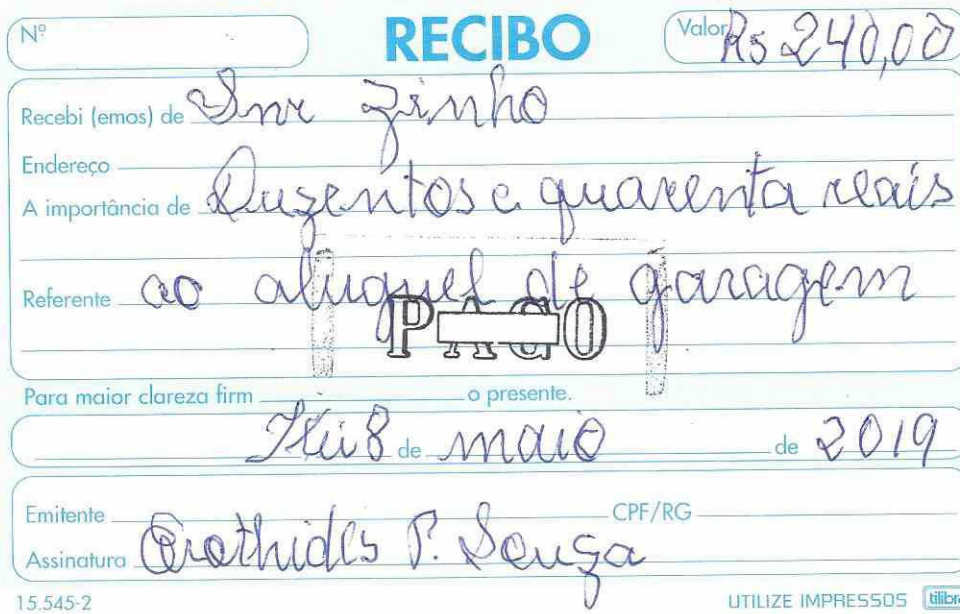 Nº RECIBO Valor R$ 240,00
Recebi (emos) de Snr Zinho
Endereço
A importância de Duzentos e quarenta reais
Referente ao aluguel de garagem
PAGO
Para maior clareza firm o presente.
Itú 8 de maio de 2019
Emitente CPF/RG
Assinatura P. Souza
15.545-2 UTILIZE IMPRESSOS tilibra